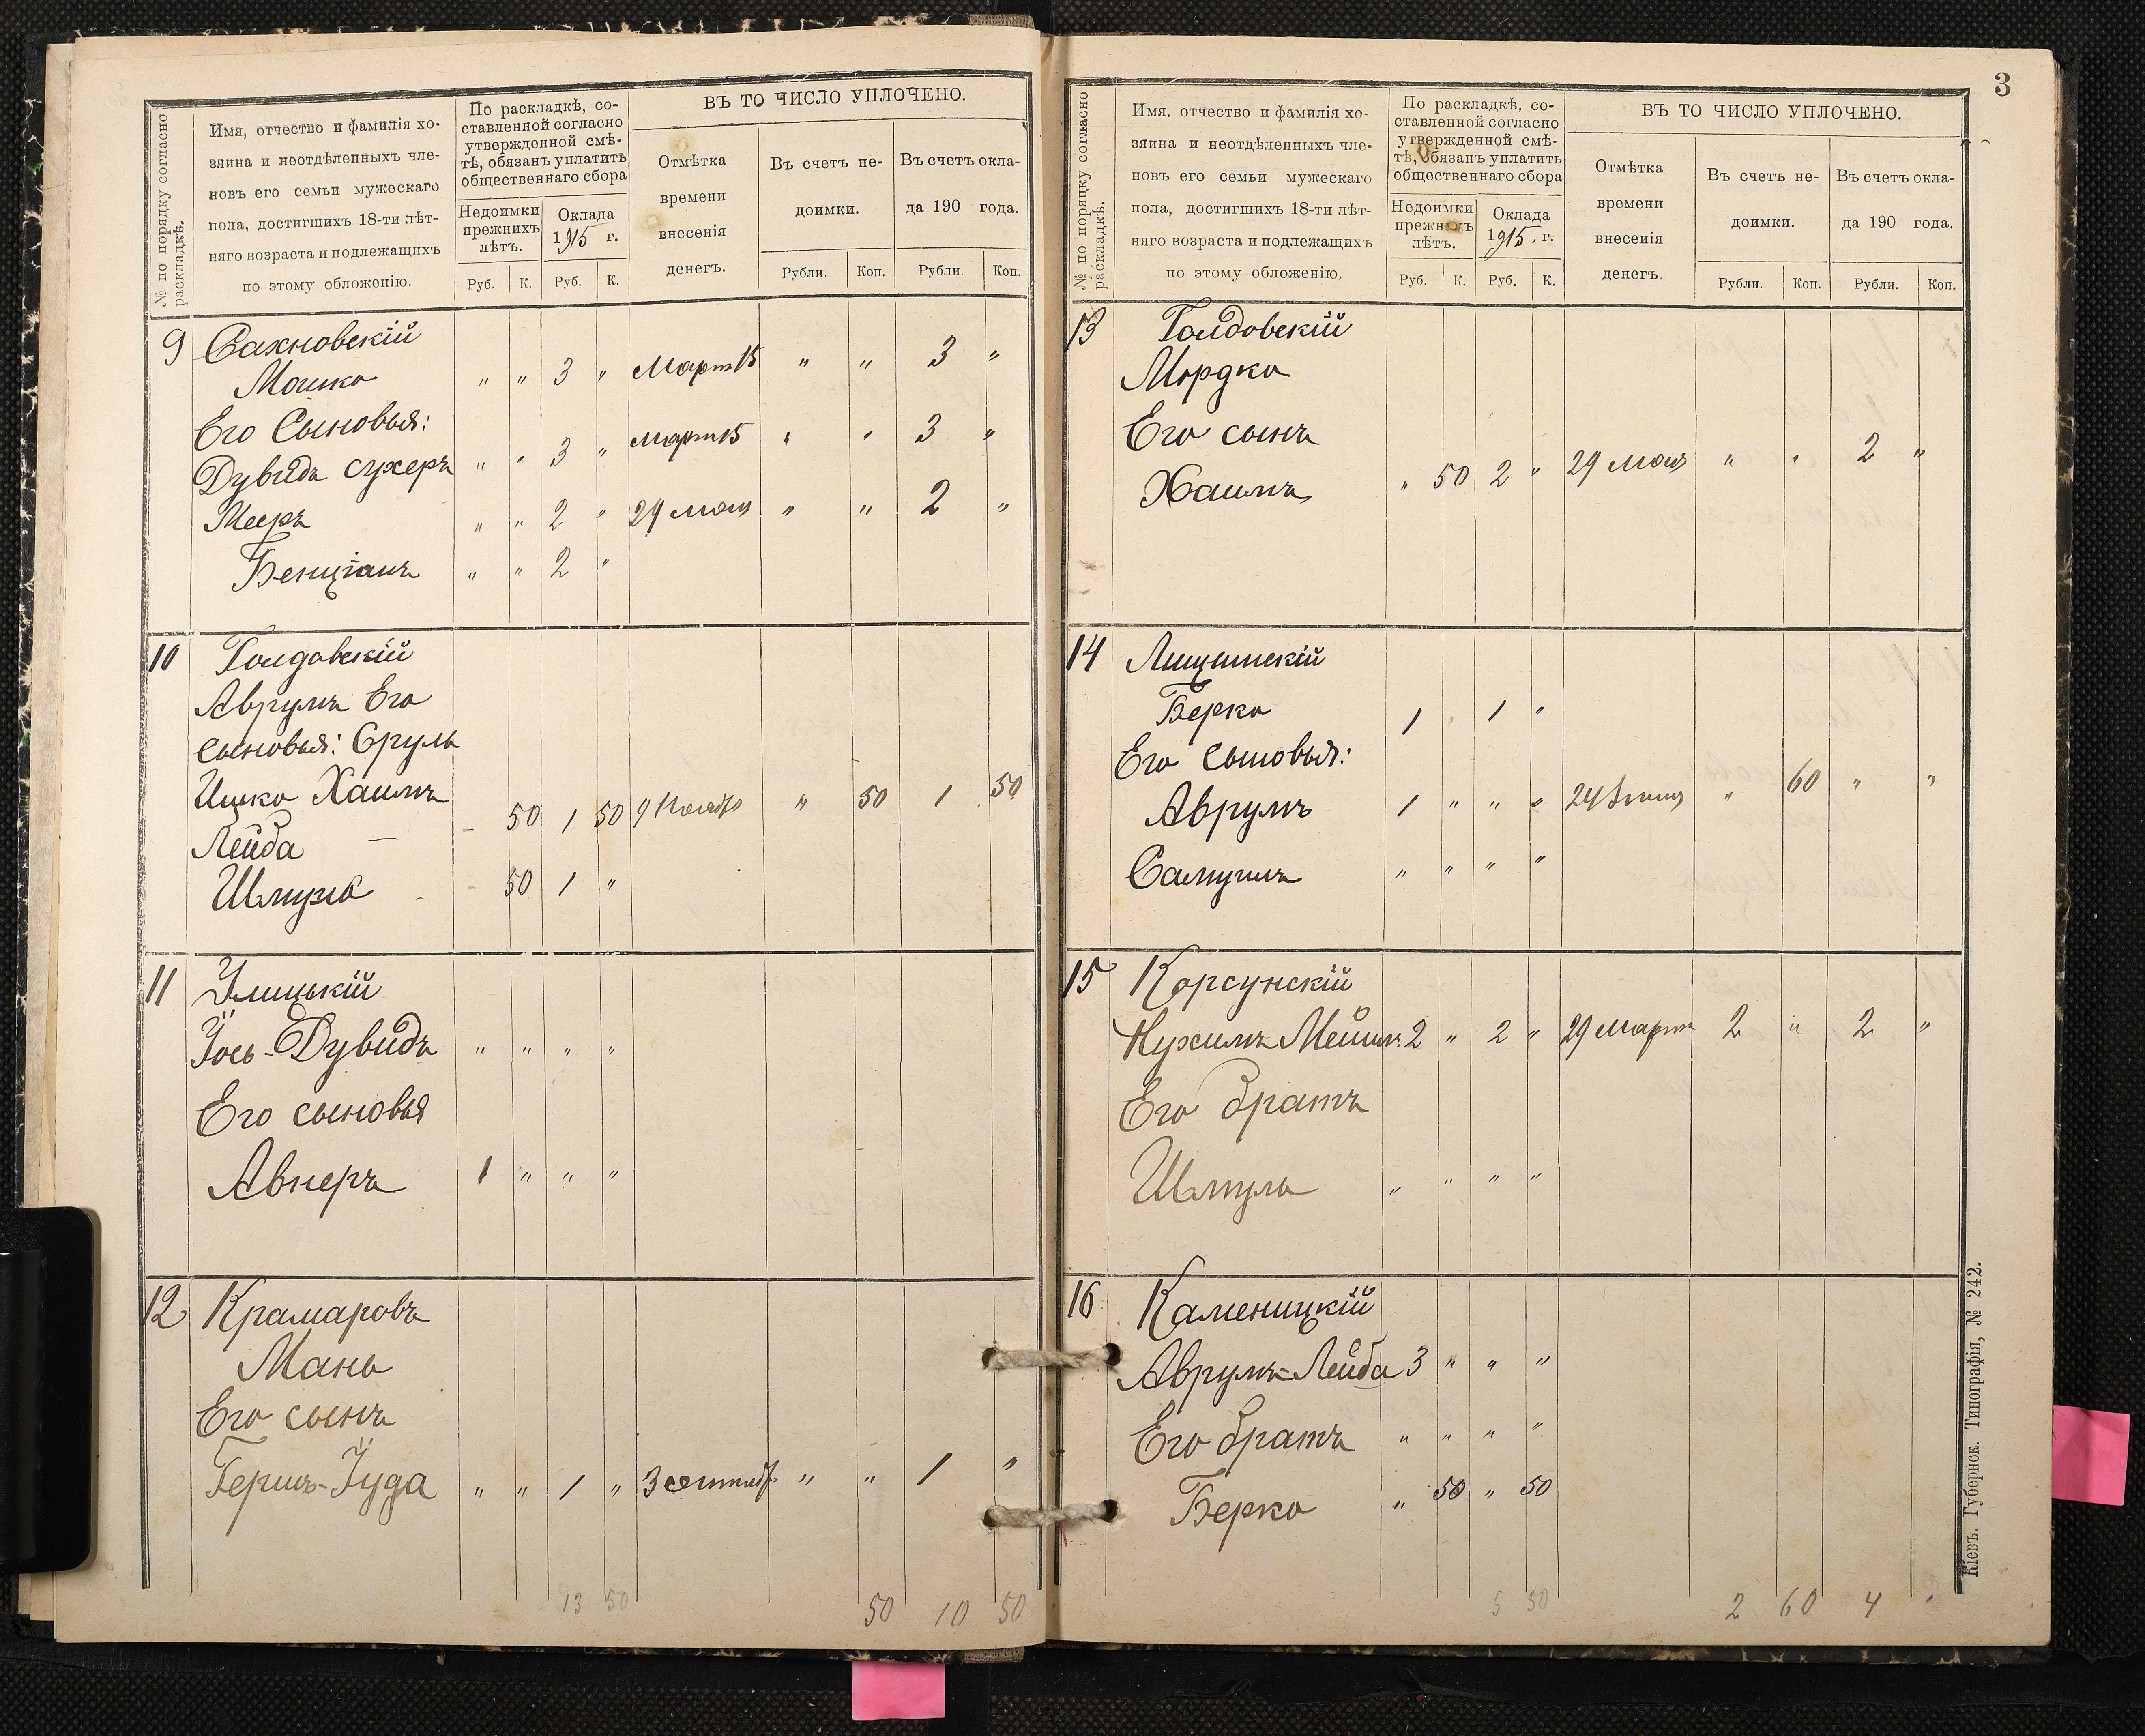 № по порядку согласно раскладкѣ.
Имя, отчество и фамилія хо-
зяина и неотдѣленныхъ чле-
новъ его семьи мужескаго
пола, достигшихъ 18-ти лѣт-
няго возраста и подлежащихъ
по этому обложенію.
По раскладкѣ, со-
ставленной согласно
утвержденной смѣ-
тѣ, обязанъ уплатить
общественнаго сбора
Недоимки прежнихъ лѣтъ.
Оклада 1915 г.
Руб. К. Руб. К.
ВЪ ТО ЧИСЛО УПЛОЧЕНО.
Отмѣтка
времени
внесенія
денегъ.
Въ счетъ не-
доимки.
Въ счетъ окла-
да 190 года.
Рубли. Коп. Рубли Коп.
9 Сахновскій
Мошко " " 3 " Март 15 " " 3 "
Его Сыновья:
Дувидъ Сухеръ " " 3 " март 15 " " 3 "
Мееръ " " 2 " 29 мая " " 2 "
Бенціанъ " " 2 "
10 Голдовскій
Аврумъ Его
сыновья: Сруль
Ицко Хаимъ
Лейба — - 50 1 50 9 Ноября " 50 1 50
Шлума - 50 1 "
11 Улицькій
Йось-Дувидъ " " " "
Его сыновья
Авнеръ 1 " " "
12 Крамаровъ
Мань
Его сынъ
Гершъ-Іуда " " 1 " 3 сентяб. " " 1 "
13 50 50 10 50
3
№ по порядку согласно раскладкѣ.
Имя. отчество и фамилія хо-
зяина и неотдѣленныхъ чле-
новъ его семьи мужескаго
пола, достигшихъ 18-ти лѣт-
няго возраста и подлежащихъ
по этому обложенію.
По раскладкѣ, со-
ставленной согласно
утвержденной смѣ-
тѣ, обязанъ уплатить
общественнаго сбора
Недоимки прежнихъ лѣтъ.
Оклада 1915. г.
Руб. К. Руб. К.
ВЪ ТО ЧИСЛО УПЛОЧЕНО.
Отмѣтка
времени
внесенія
денегъ.
Въ счетъ не-
доимки.
Въ счетъ окла-
да 190 года.
Рубли. Коп. Рубли. Коп.
13 Голдовскій
Мордко
Его сынъ
Хаимъ " 50 2 " 29 мая " " 2 "
14 Лищинскій
Берко 1 " 1 "
Его Сыновья:
Аврумъ 1 " " " 24 " 60 " "
Самуилъ " " " "
15 Корсунскій
Нухимъ 2 " 2 " 29 Март 2 " 2 "
Его братъ
Шмуль " " " "
16 Каменицкій
Аврумъ-Лейба 3 " " "
Его братъ " " " "
Берко " 50 " 50
5 50 2 60 4 "
Кіевъ. Губернск. Типографія, № 242.